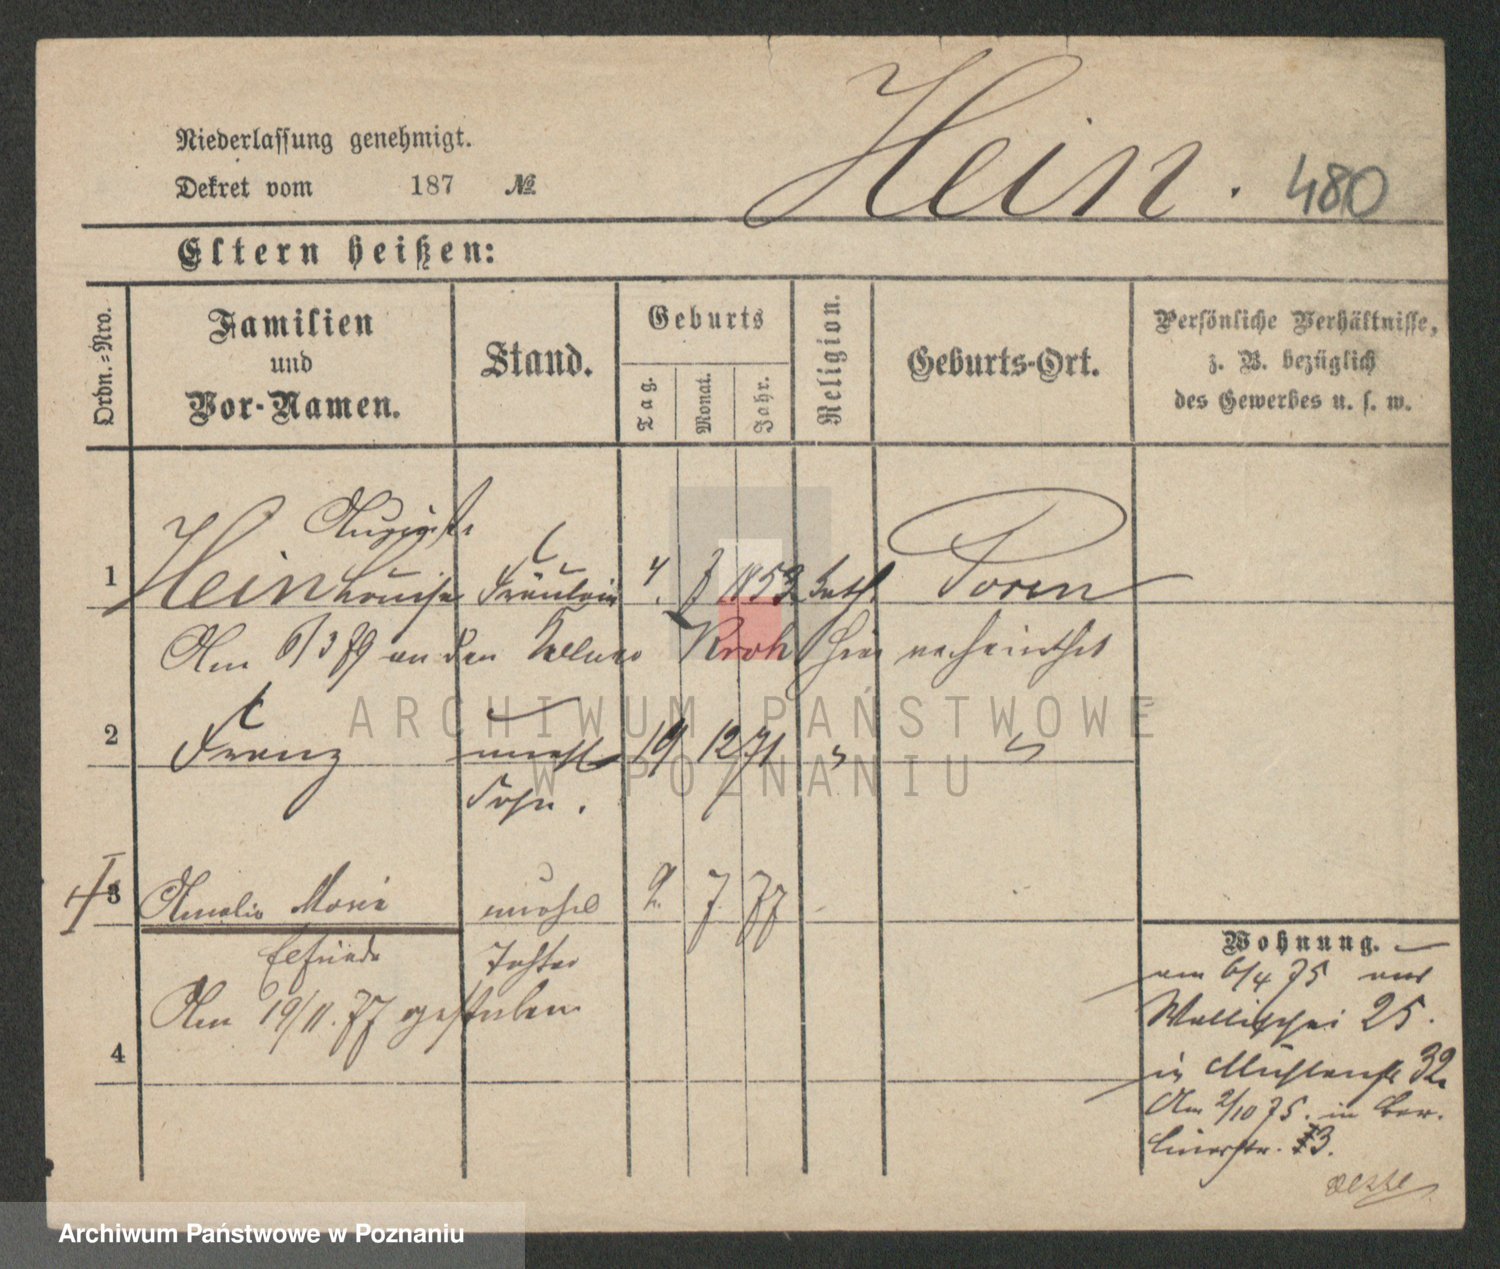 Hein. 480
Niederlassung genehmigt.
Dekret vom 187 №
Eltern heißen:
Ordn.=Nro.
Familien
und
Vor-Namen.
Stand.
Geburts
Tag.
Monat.
Jahr.
Religion.
Geburts-Ort.
Persönliche Verhältnisse,
z. B. bezüglich
des Gewerbes u. s. w.
Auguste
1 Hein Louise Fräulein 4. 1853 kath. Posen
Am 6/3 79 an den Kellner Kroh hier verheirathet
2 Franz unehl 19 12 71 " "
Sohn.
3 Amalie Maria unehel 2. 7 77
Elfriede Tochter
Am 19/11. 77 gestorben
4
Wohnung.
am 6/4 75 aus
Wallischei 25.
in Mühlenstr 32.
Am 2/10 75. in Ber-
linerstr. 13.
ARCHIWUM PAŃSTWOWE
W POZNANIU
Archiwum Państwowe w Poznaniu